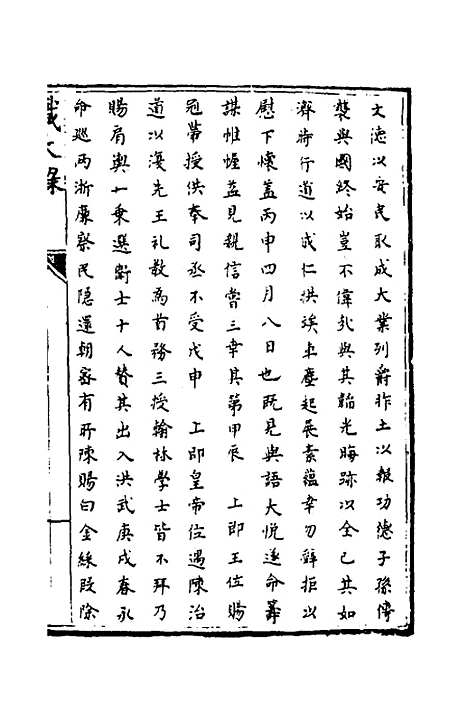 文德以安民取成大業列爵胙土以報功德子孫傳
襲與國終始豈不偉哉與其韜光晦跡以全己其如
濟將行道以成仁洪竢車塵起展素蘊幸勿辭拒以
慰下懷蓋丙申四月八日也既見與語大悅遂命籌
謀帷幄益見親信嘗三幸其第甲辰　上即王位賜
冠帶授供奉司丞不受戊申　上即皇帝位遇陳治
道以復先王禮教為首務三授翰林學士皆不拜乃
賜肩輿一乗選衛士十人贊其出入洪武庚戌春永
命廵兩浙廉察民隱還朝密有所陳賜白金綵叚除
獻大錄